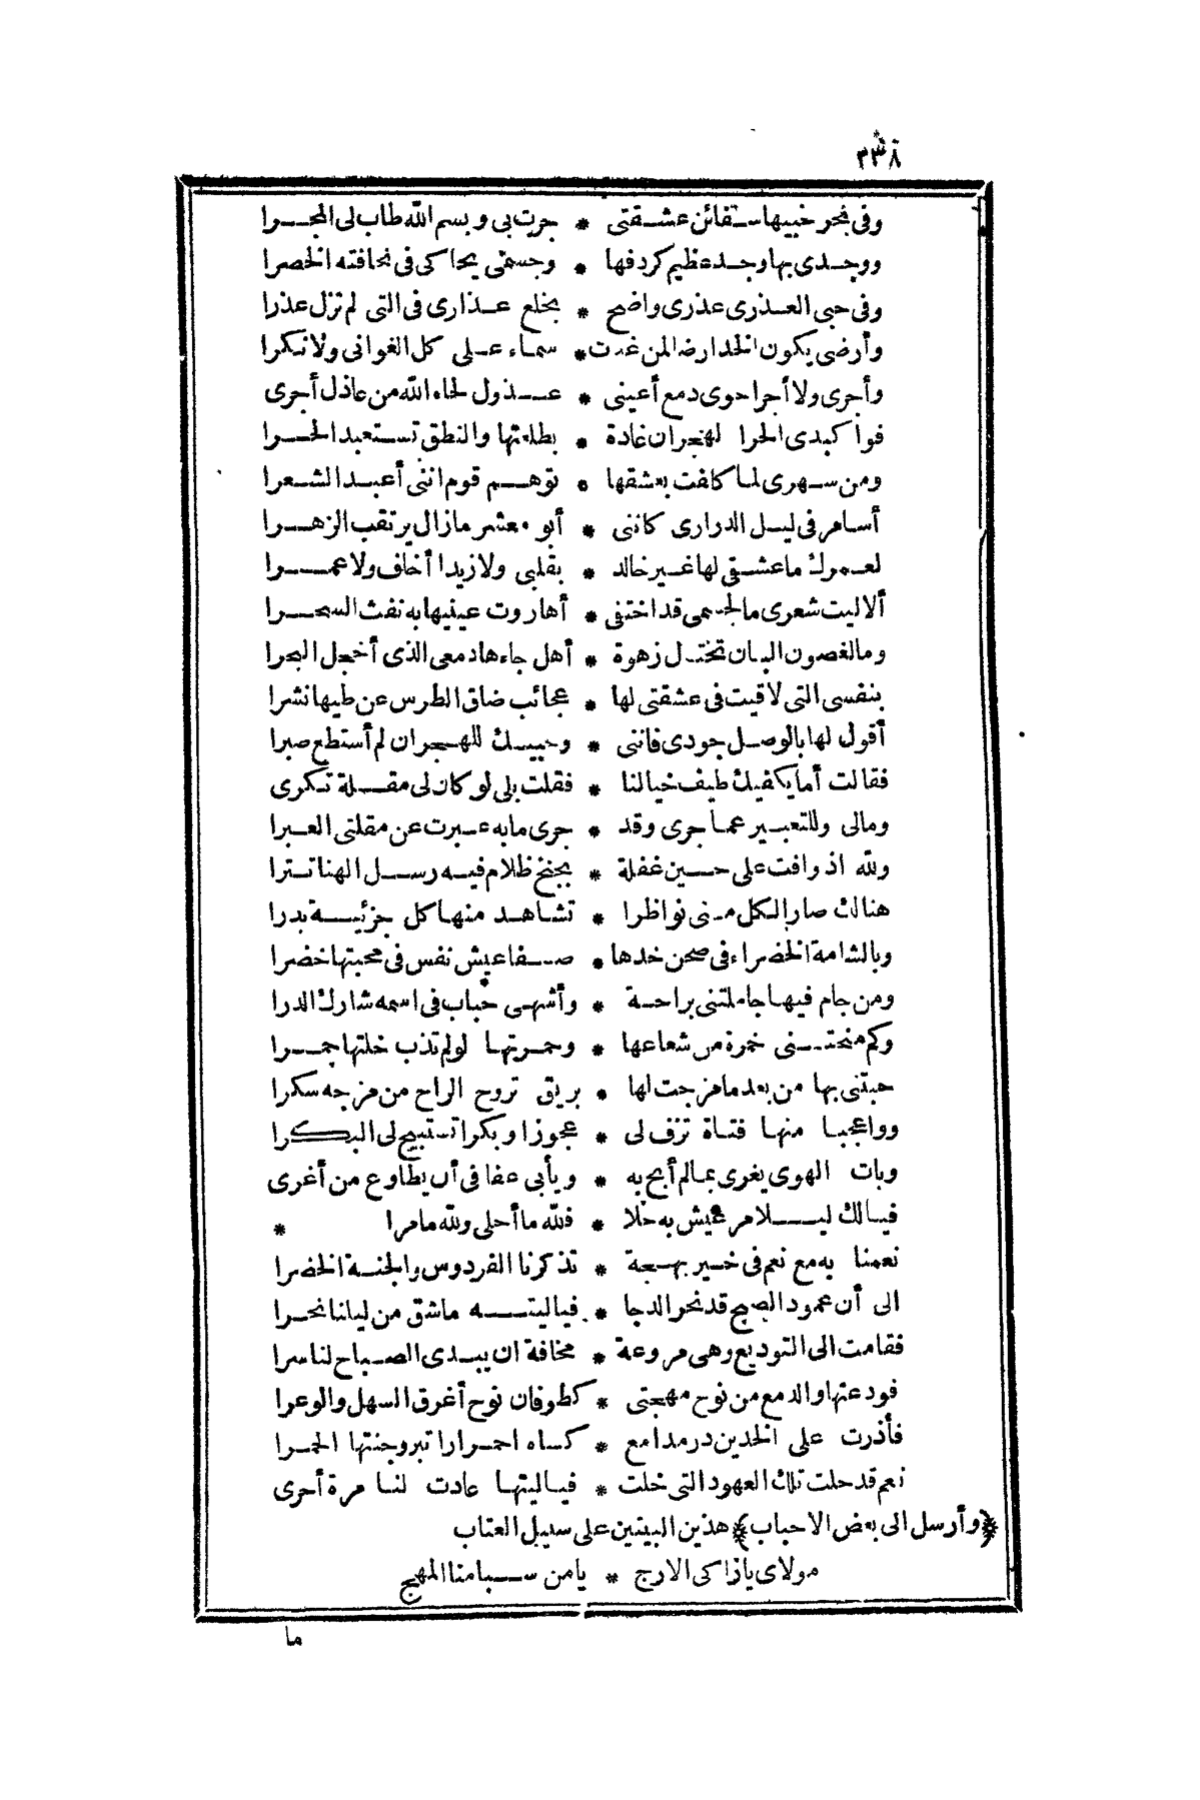 ٣٣٨
وفى بحر خبيها سفائن عشقتى * جرت بى وبسم الله طاب لى المجرا
ووجدى بها وجد عظيم كردفها * وجسمى يحاكى فى نحافته الخصرا
وفى حبى العذرى عذرى واضح * بخلع عذارى فى التى لم تزل عذرا
وأرضى يكون الخد ارضا لمن غدت * سماء على كل الغوانى ولا نكرا
وأجرى ولا أجرا حوى دمع أعينى * عذول لحاء الله من عاذل أجرى
فوا كبدى الحرا لهجران غادة * بطلعتها والنطق تستعبد الحرا
ومن سهرى لما كلفت بعشقها * توهم قوم اننى أعبد الشعرا
أسامر فى ليل الدرارى كاننى * أبو معشر ما زال يرتقب الزهرا
لعمرك ما عشقى لها غير خالد * بقلبى ولا زيدا أخاف ولا عمرا
ألا ليت شعرى ما لجسمى قد اختفى * أهاروت عينيها به نفث السحرا
وما لغصون البان تختل زهوة * أهل جاءها دمعى الذى أخجل البحرا
بنفسى التى لاقيت فى عشقتى لها * عجائب ضاق الطرس عن طيها نشرا
أقول لها بالوصل جودى فاننى * وحبيك للهجران لم أستطع صبرا
فقالت أما يكفيك طيف خيالنا * فقلت بلى لو كان لى مقلة تكرى
ومالى وللتعبير عما جرى وقد * جرى ما به عبرت عن مقلتى العبرا
ولله اذ وافت على حين غفلة * بجنح ظلام فيه رسل الهنا تترا
هنالك صار الكل منى نواظرا * تشاهد منها كل جزئية بدرا
وبالشامة الخضراء فى صحن خدها * صفا عيش نفس فى محبتها خضرا
ومن جام فيها جاملتنى براحة * وأشهى حباب فى اسمه شارك الدرا
وكم منحتنى خمرة من شعاعها * وحمرتها لو لم تذب خلتها جمرا
حبتنى بها من بعد ما مزجت لها * بريق تروح الراح من مزجه سكرا
وواعجبا منها فتاة تزف لى * عجوزا وبكرا تستبيح لى البكرا
وبات الهوى يغرى بمالم أبح به * ويأبى عفافى أن يطاوع من أغرى
فيالك ليلا مر عيش به حلا * فلله ما أحلى ولله ما مرا *
نعمنا به مع نعم فى خير بهجة * تذكرنا الفردوس والجنة الخضرا
الى أن عمود الصبح قد نحر الدجا * فياليته ما شق من ليلنا نحرا
فقامت الى التوديع وهى مروعة * مخافة ان يبدى الصباح لنا سرا
فودعتها والدمع من نوح مهجتى * كطوفان نوح أغرق السهل والوعرا
فأذرت على الخدين در مدامع * كساه احمرارا تبر وجنتها الحمرا
نعم قد حلت تلك العهود التى خلت * فياليتها عادت لنا مرة أخرى
﴿وأرسل الى بعض الاحباب﴾ هذين البيتين على سبيل العتاب
مولاى يا زاكى الارج * يا من سبا منا المهج
ما